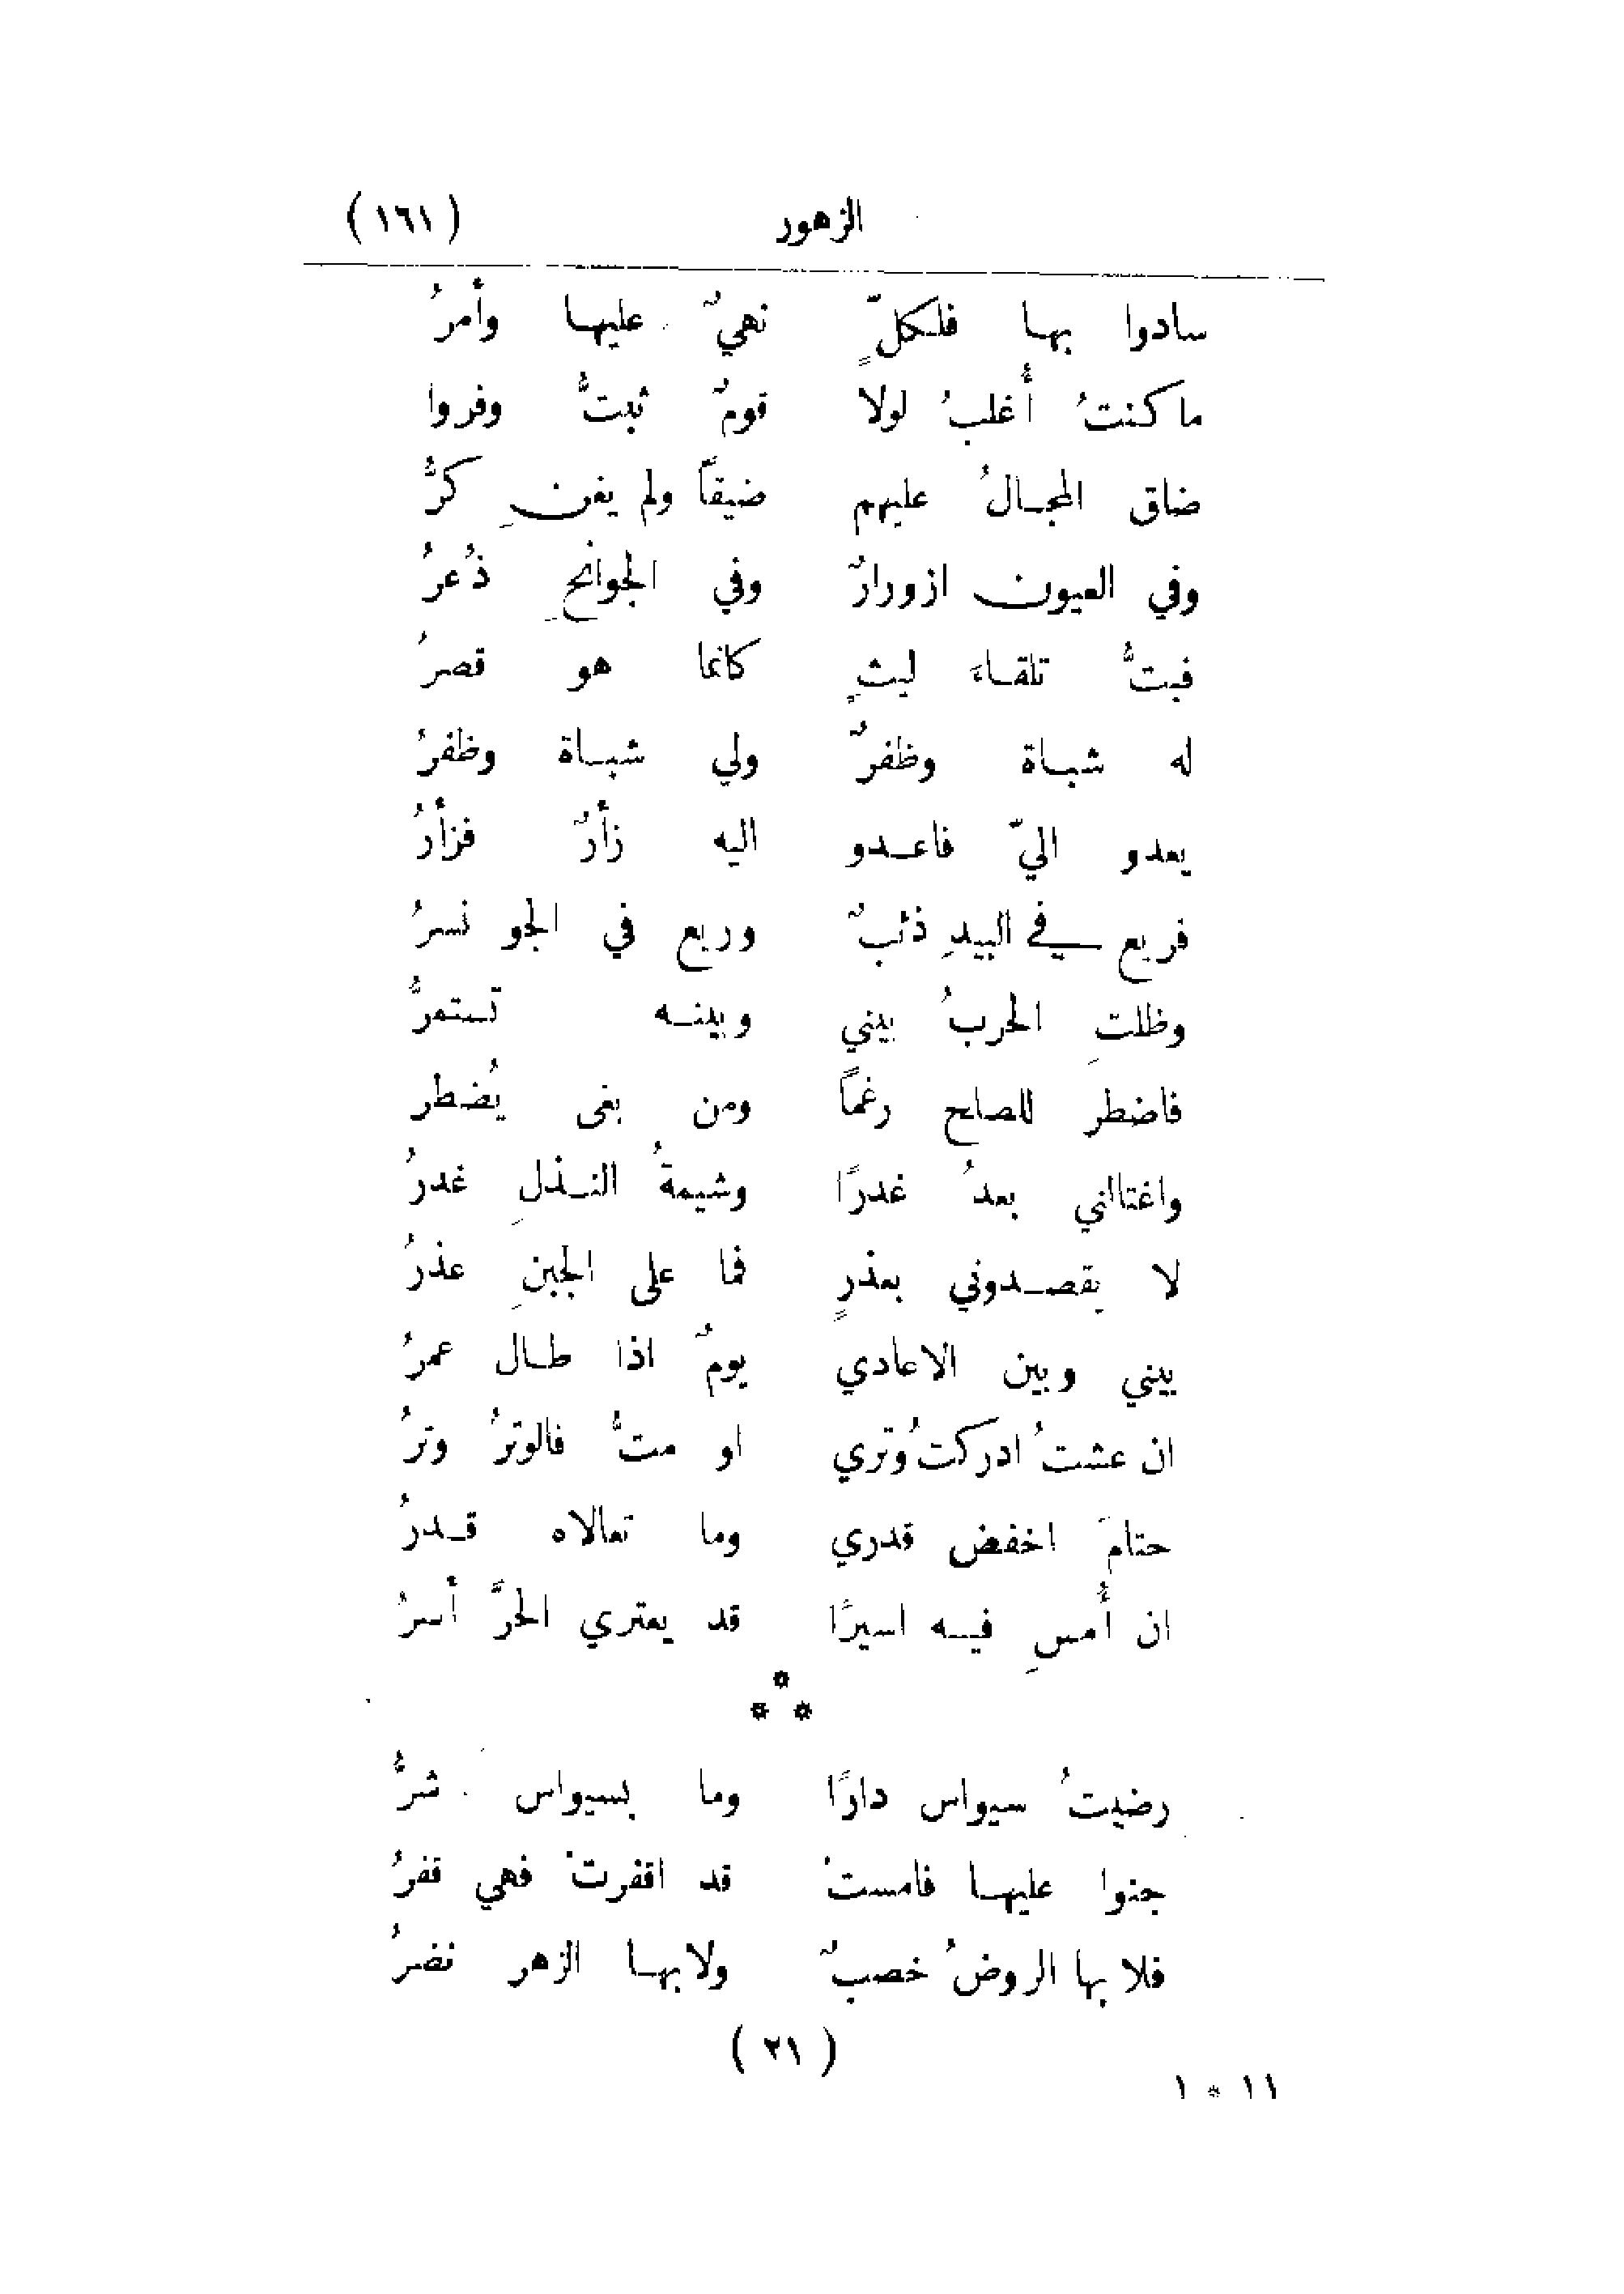 الزهور (١٦١)
سادوا بها فلكلٍّ نهيٌ عليها وأمرُ
ما كنتُ أُغلبُ لولا قومٌ ثبتُّ وفروا
ضاق المجالُ عليهم ضيقاً ولم يغنِ كرُّ
وفي العيون ازورارٌ وفي الجوانحِ ذُعرُ
فبتُّ تلقاءَ ليثٍ كانما هو قصرُ
له شباة وظفرٌ ولي شباة وظفرُ
يعدو اليّ فاعدو اليه زأرٌ فزأرُ
فريع في البيدِ ذئبٌ وريع في الجو نسرُ
وظلتِ الحربُ بيني وبينه تستمرُّ
فاضطر للصلح رغماً ومن بغى يُضطر
واغتالني بعدُ غدرًا وشيمةُ النذلِ غدرُ
لا يقصدوني بعذرٍ فما على الجبنِ عذرُ
بيني وبين الاعادي يومٌ اذا طال عمرُ
ان عشتُ ادركتُ وتري او متُّ فالوترُ وترُ
حتامَ اخفض قدري وما تعالاه قدرُ
ان أُمسِ فيه اسيرًا قد يعتري الحرَّ أسرُ
*
* *
رضيتُ سيواس دارًا وما بسيواس شرُّ
جنوا عليها فامستْ قد اقفرتْ فهي قفرُ
فلا بها الروضُ خصبٌ ولا بها الزهر نضرُ
(٢١)
١١ * ١